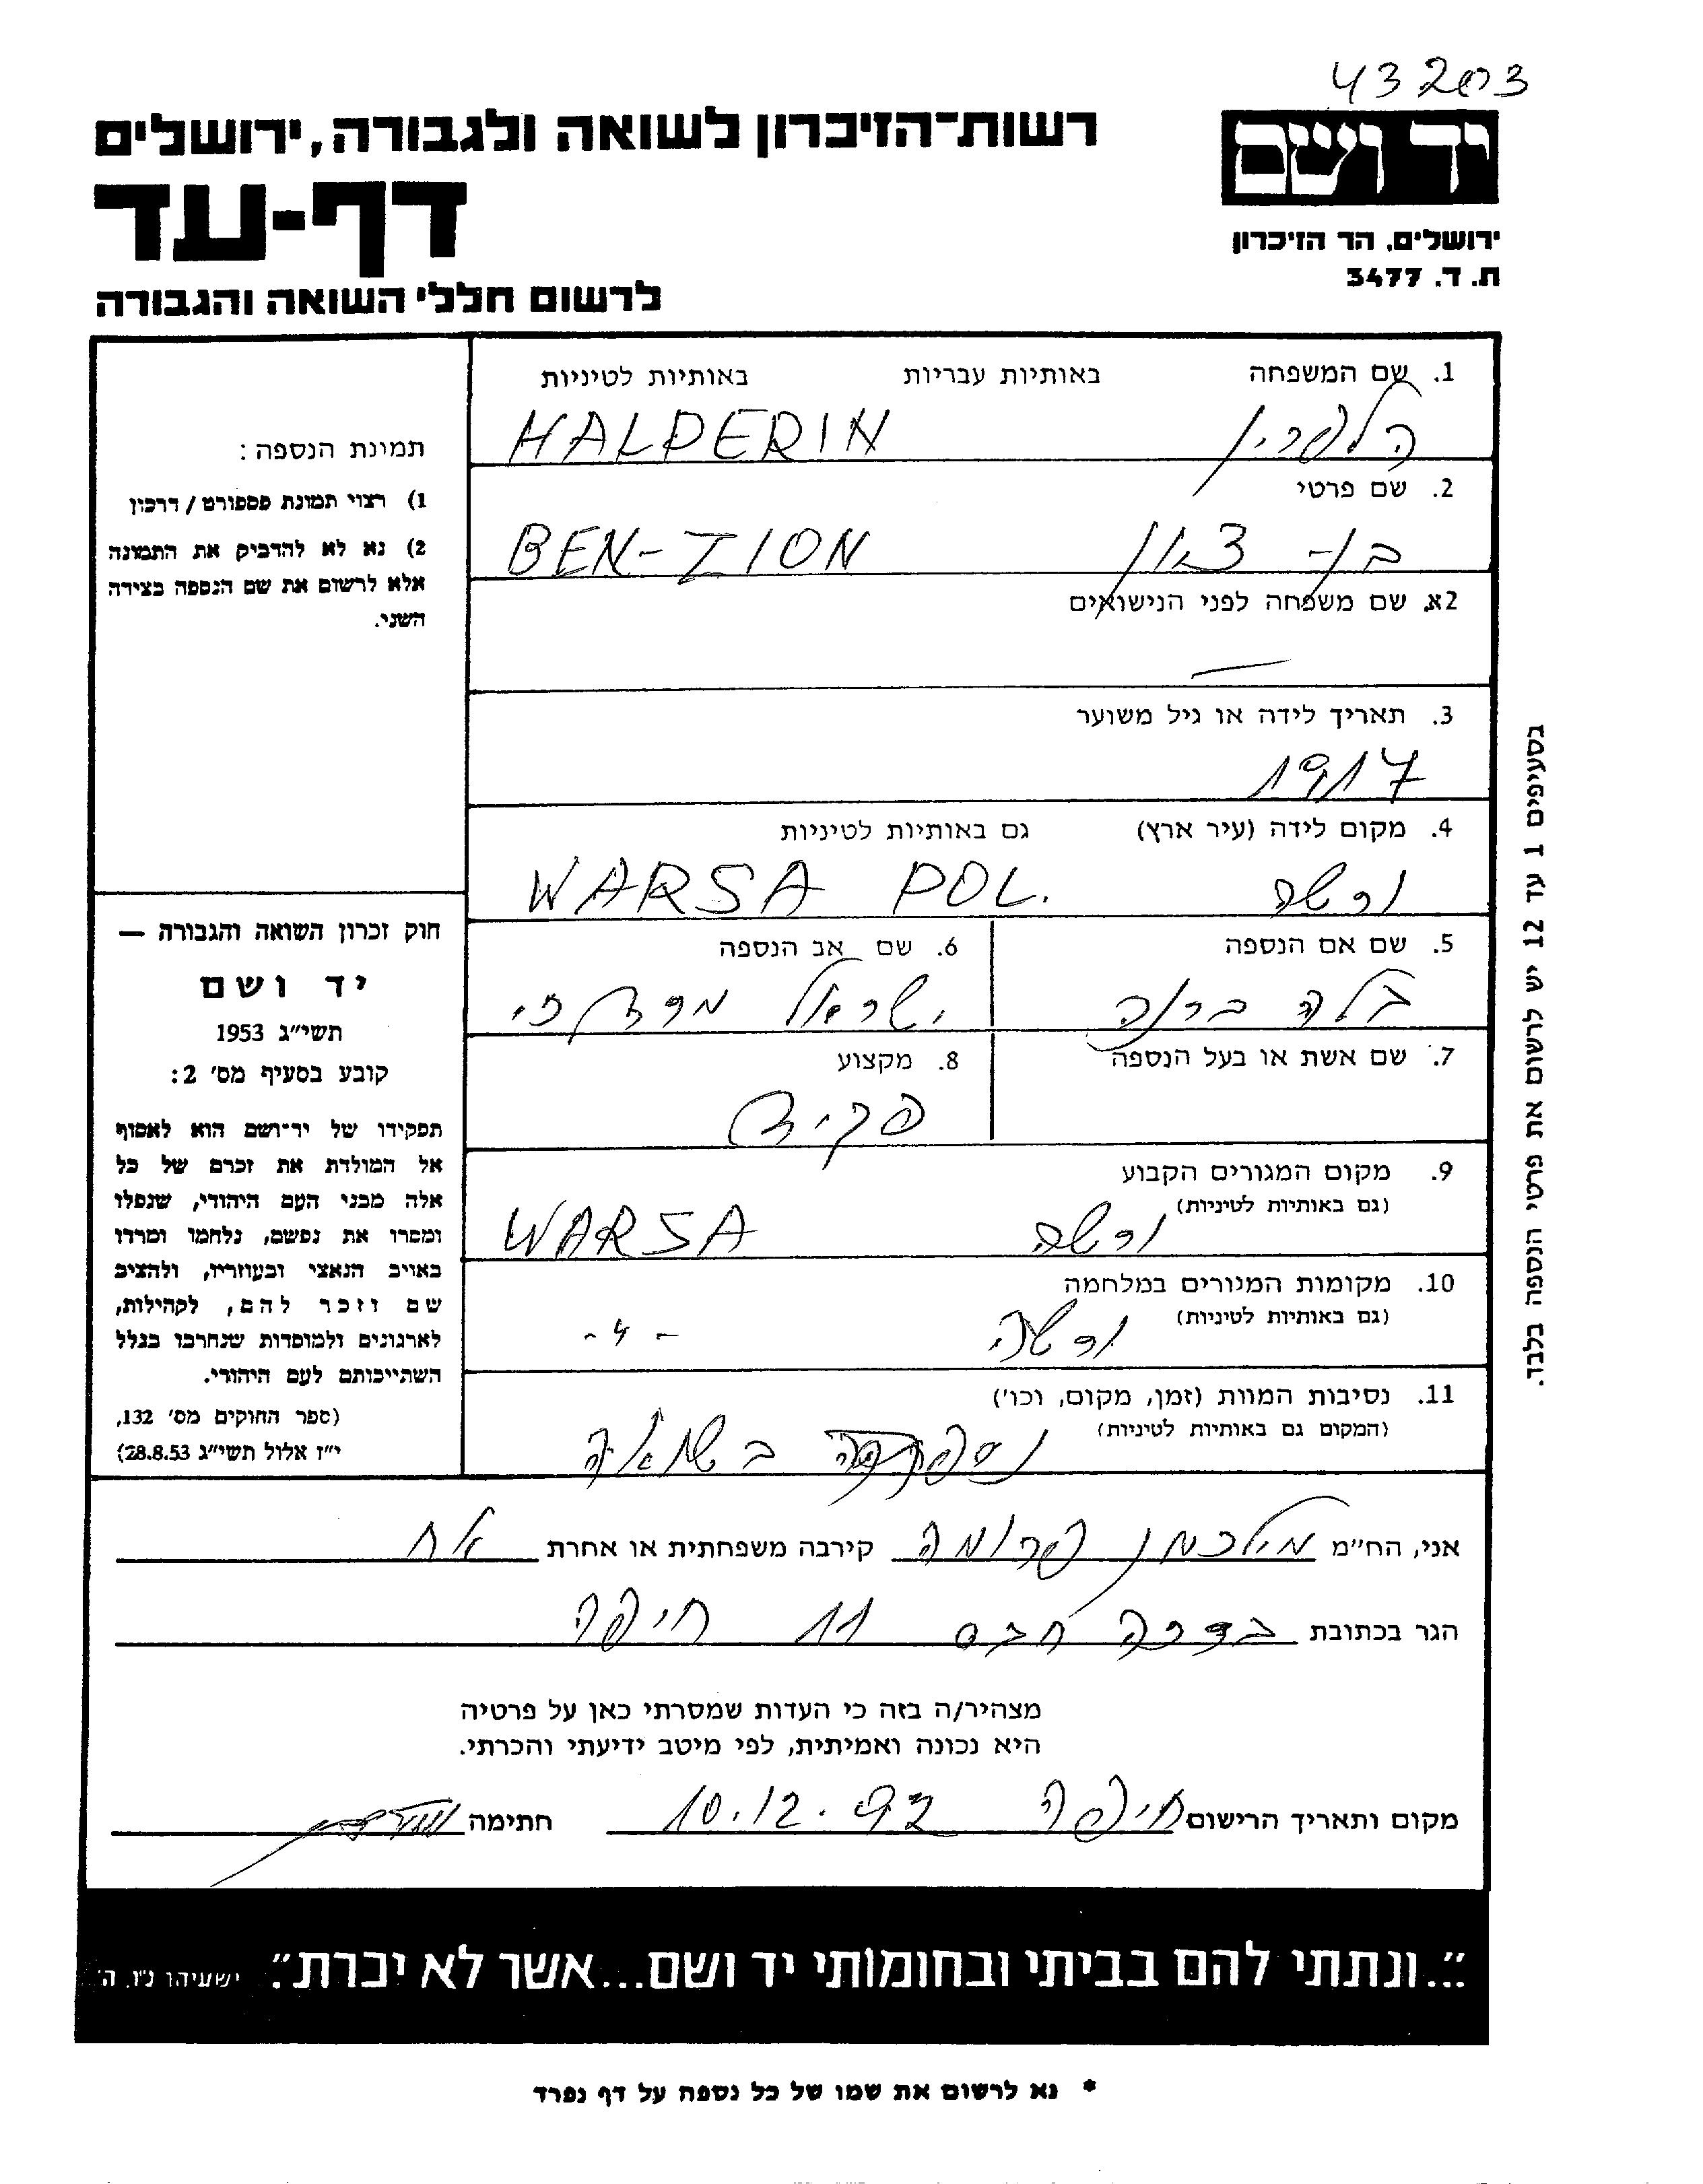 43203
רשות־הזיכרון לשואה ולגבורה, ירושלים
דף-עד
לרשום חללי השואה והגבורה
יד ושם
ירושלים, הר הזיכרון
ת. ד. 3477
תמונת הנספה:
1) רצוי תמונת פספורט / דרכון
2) נא לא להדביק את התמונה
אלא לרשום את שם הנספה בצידה
השני.
חוק זכרון השואה והגבורה —
יד ושם
תשי״ג 1953
קובע בסעיף מס׳ 2:
תפקידו של יד־ושם הוא לאסוף
אל המולדת את זכרם של כל
אלה מבני העם היהודי, שנפלו
ומסרו את נפשם, נלחמו ומרדו
באויב הנאצי ובעוזריו, ולהציב
שם וזכר להם, לקהילות,
לארגונים ולמוסדות שנחרבו בגלל
השתייכותם לעם היהודי.
(ספר החוקים מס׳ 132,
י״ז אלול תשי״ג 28.8.53)
1. שם המשפחה באותיות עבריות באותיות לטיניות
הלפרין HALPERIN
2. שם פרטי
בן - ציון BEN-ZION
2א. שם משפחה לפני הנישואים
—
3. תאריך לידה או גיל משוער
1917
4. מקום לידה (עיר ארץ) גם באותיות לטיניות
ורשה WARSA POL.
5. שם אם הנספה 6. שם אב הנספה
בלה ברנה ישראל מרדכי
7. שם אשת או בעל הנספה 8. מקצוע
פקיד
9. מקום המגורים הקבוע
(גם באותיות לטיניות)
ורשה WARSA
10. מקומות המגורים במלחמה
(גם באותיות לטיניות)
ורשה - 4 -
11. נסיבות המוות (זמן, מקום, וכו׳)
(המקום גם באותיות לטיניות)
בשואה
אני, הח״מ מילכמן פרומה קירבה משפחתית או אחרת אח
הגר בכתובת 11 חיפה
מצהיר/ה בזה כי העדות שמסרתי כאן על פרטיה
היא נכונה ואמיתית, לפי מיטב ידיעתי והכרתי.
מקום ותאריך הרישום חיפה 10.12.92 חתימה
״...ונתתי להם בביתי ובחומותי יד ושם...אשר לא יכרת״. ישעיהו נ״ו, ה׳
* נא לרשום את שמו של כל נספה על דף נפרד
בסעיפים 1 עד 12 יש לרשום את פרטי הנספה בלבד.